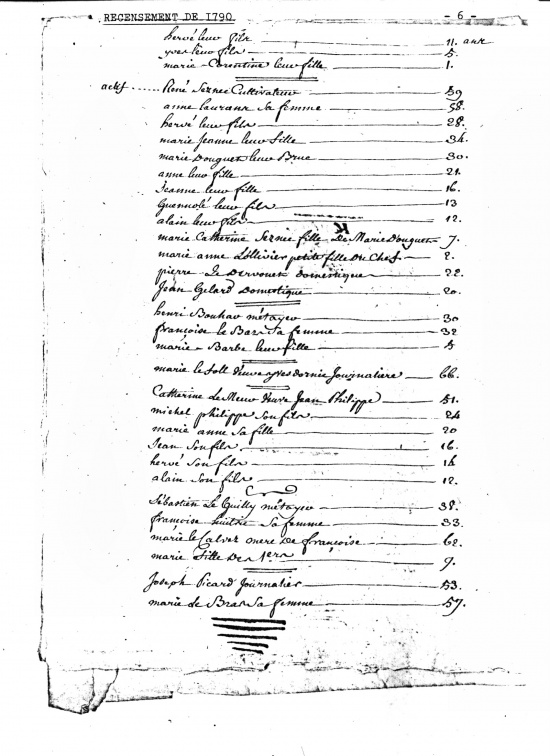 RECENSEMENT DE 1790 - 6 -
hervé leur fils 11. ans
yves leur fils 5.
marie Corentine leur fille 1.
actif ..... René Seznec Cultivateur 59
anne laurans sa femme 58.
hervé leur fils 28.
marie Jeanne leur fille 34.
marie Douguet leur Brue 30.
anne leur fille 21.
Jeanne leur fille 16.
Guennolé leur fils 13
alain leur fils 12.
marie Catherine Seznec fille De Marie Douguet 7.
marie anne Lollivier petite fille Du Chef 2.
pierre Le Dervouet domestique 22.
Jean Gelard Domestique 20.
henri Bouhar métayer 30
françoise le Bars Sa femme 32
marie Barbe leur fille 5
marie le Soll veuve yves dornic Journaliere 66.
Catherine Le Meur veuve Jean Philippe 51.
michel philippe son fils 24
marie anne Sa fille 20
Jean Son fils 16.
hervé Son fils 14
alain Son fils 12.
Sébastien Le Guilly métayer 38.
françoise Sa femme 33.
marie le Calvez mere De françoise 62.
marie fille De 1ers 9.
Joseph Picard Journalier 53.
marie de Bras Sa femme 57.